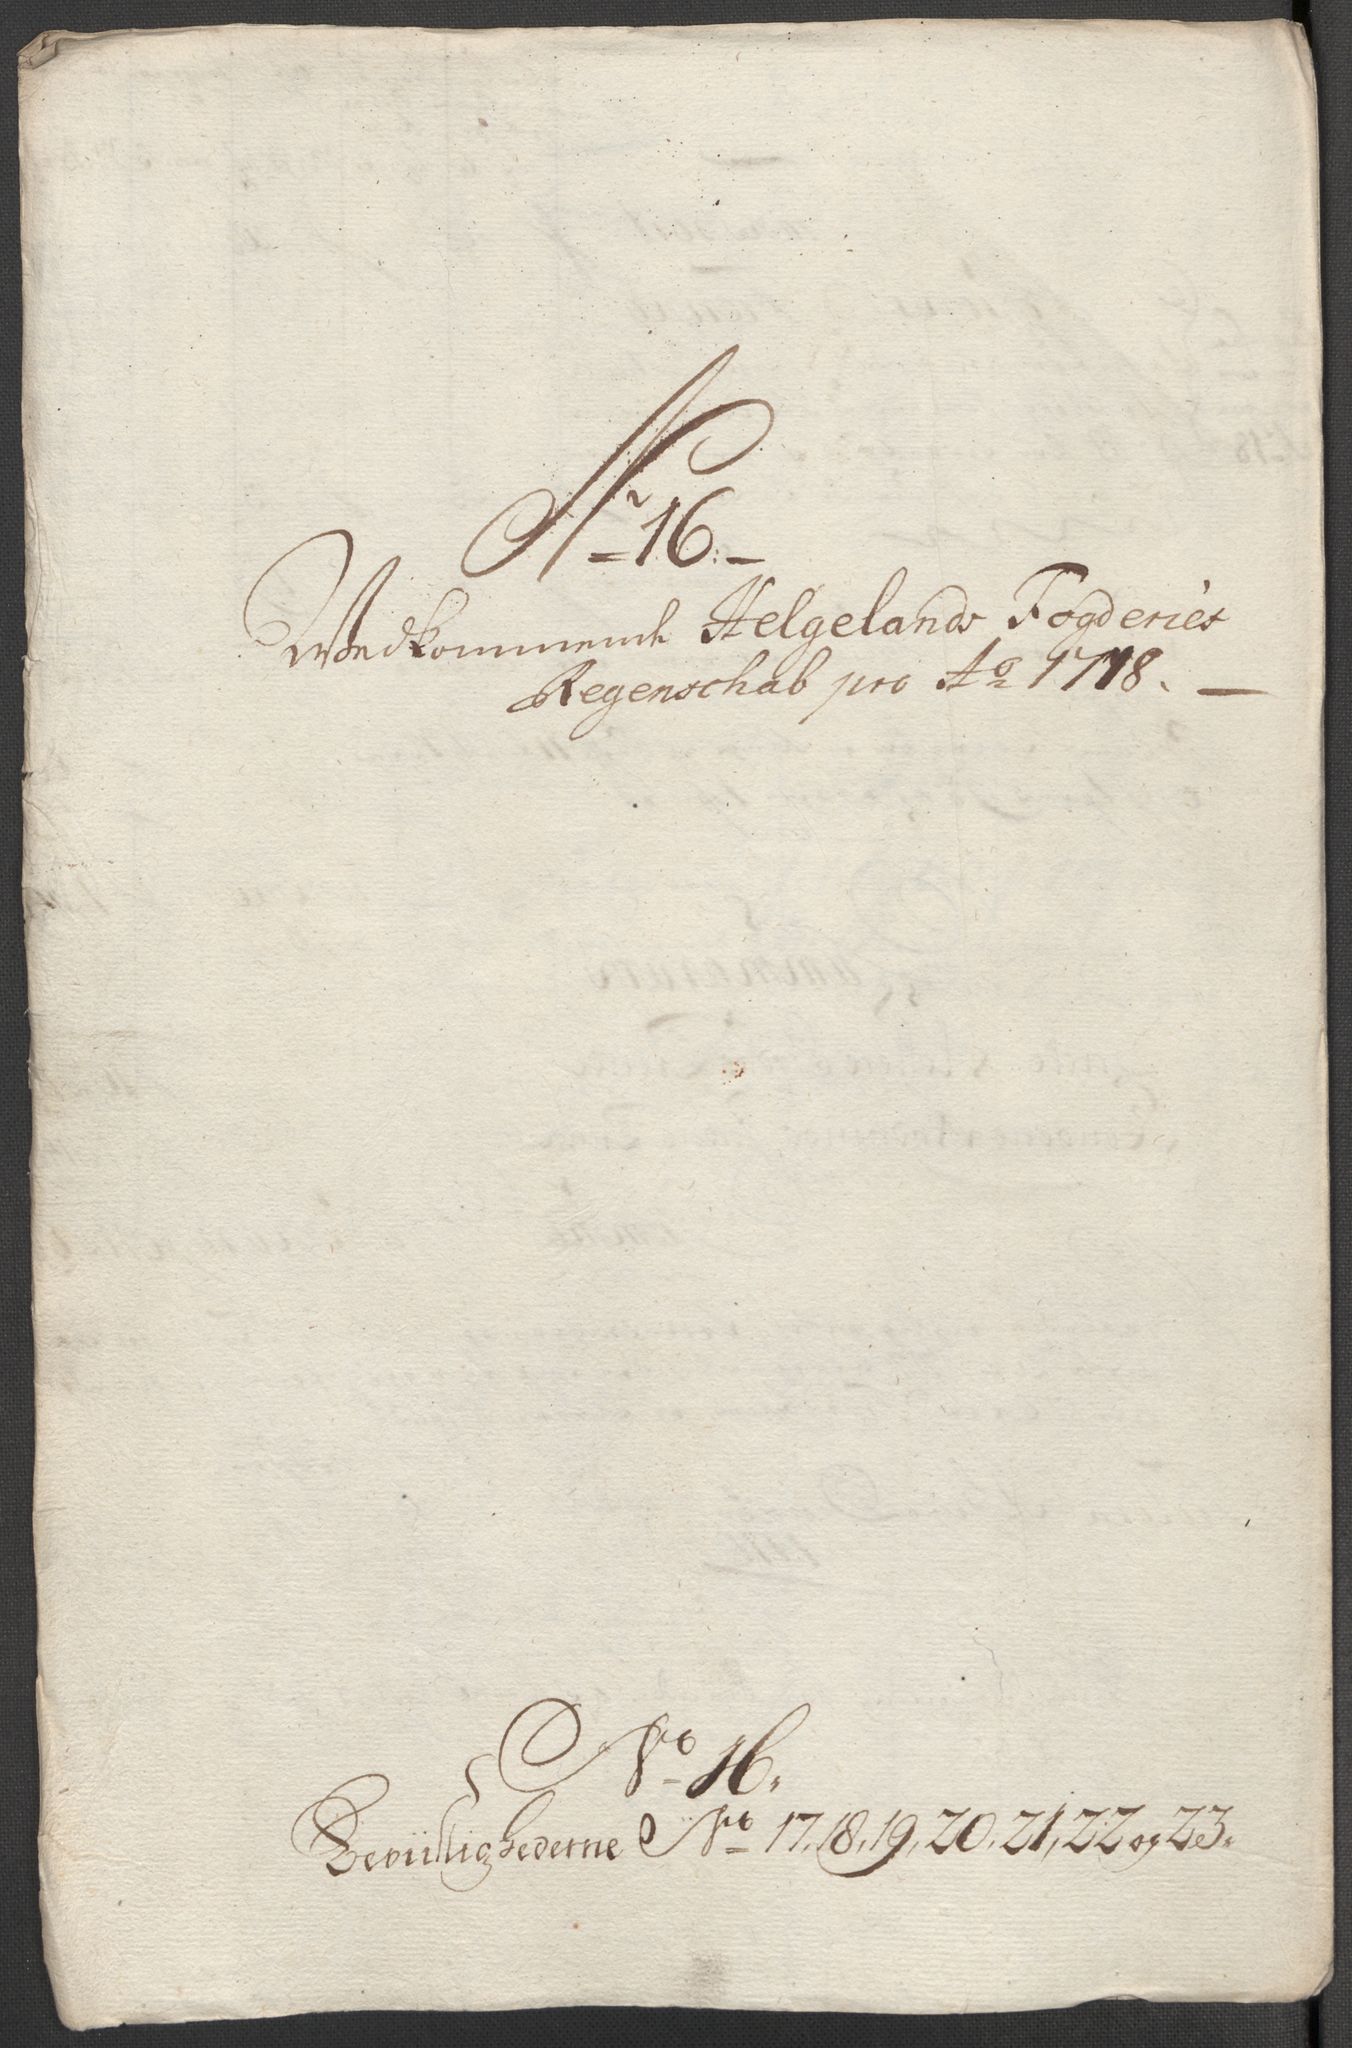 Nr 16.
Wedkommende Helgelands Fogderies
Regenschab pro Ao 1718.
No 16.
Bevillighederne No 17, 18, 19, 20, 21, 22 og 23.